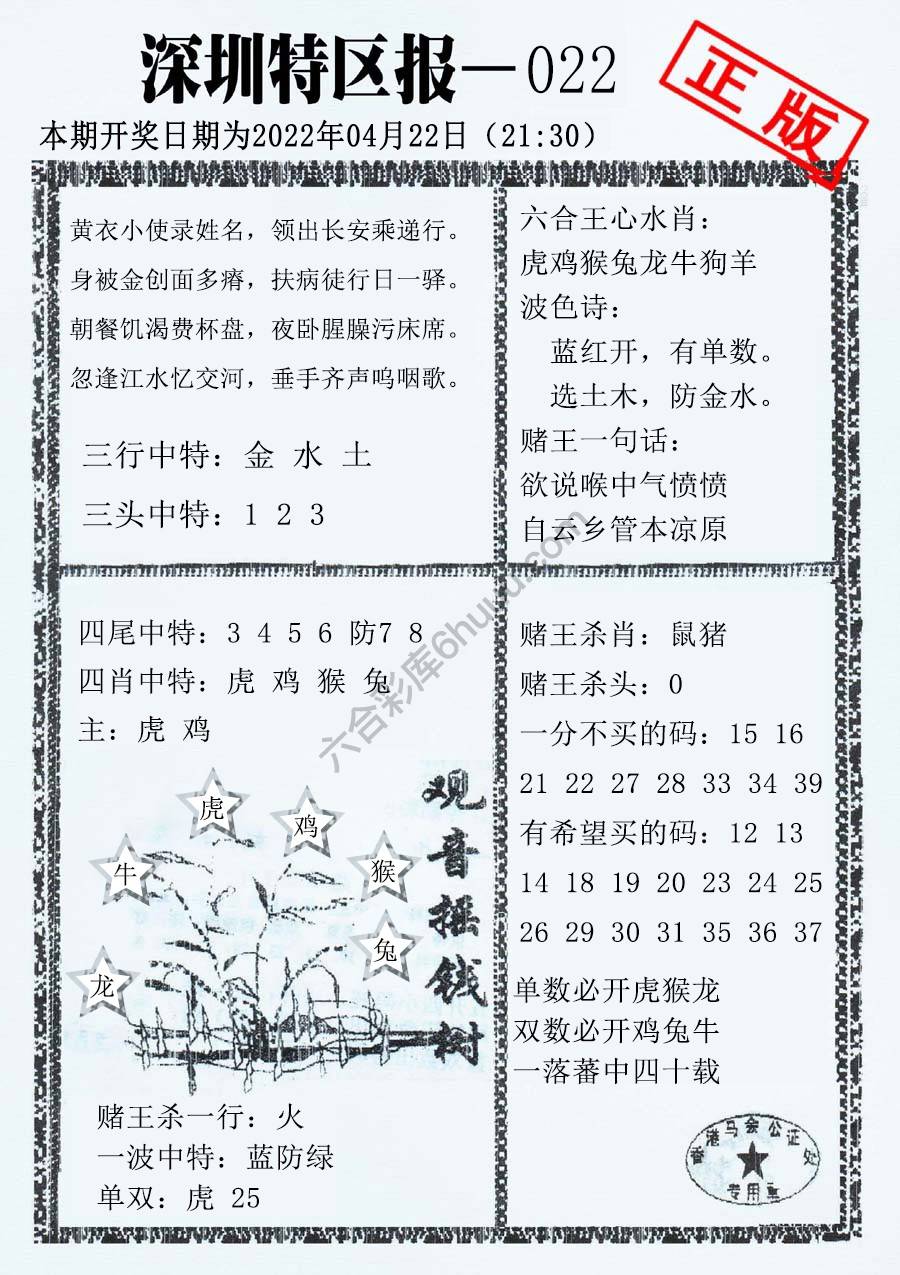 深圳特区报—022
正版
本期开奖日期为2022年04月22日（21:30）
黄衣小使录姓名，领出长安乘递行。
身被金创面多瘠，扶病徒行日一驿。
朝餐饥渴费杯盘，夜卧腥臊污床席。
忽逢江水忆交河，垂手齐声呜咽歌。
三行中特：金 水 土
三头中特：1 2 3
六合王心水肖：
虎鸡猴兔龙牛狗羊
波色诗：
蓝红开，有单数。
选土木，防金水。
赌王一句话：
欲说喉中气愤愤
自云乡管本凉原
四尾中特：3 4 5 6 防7 8
四肖中特：虎 鸡 猴 兔
主：虎 鸡
虎
鸡
牛
猴
兔
龙
观音摇钱树
赌王杀一行：火
一波中特：蓝防绿
单双：虎 25
赌王杀肖：鼠猪
赌王杀头：0
一分不买的码：15 16
21 22 27 28 33 34 39
有希望买的码：12 13
14 18 19 20 23 24 25
26 29 30 31 35 36 37
单数必开虎猴龙
双数必开鸡兔牛
一落蕃中四十载
香港马会公证处
专用章
六合彩库6huuu.com